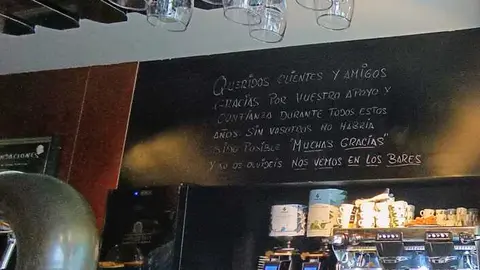 QUERIDOS CLIENTES Y AMIGOS
GRACIAS POR VUESTRO APOYO Y
CONFIANZA DURANTE TODOS ESTOS
AÑOS. SIN VOSOTROS NO HABRÍA
SIDO POSIBLE "MUCHAS GRACIAS"
Y NO OS OLVIDÉIS NOS VEMOS EN LOS BARES